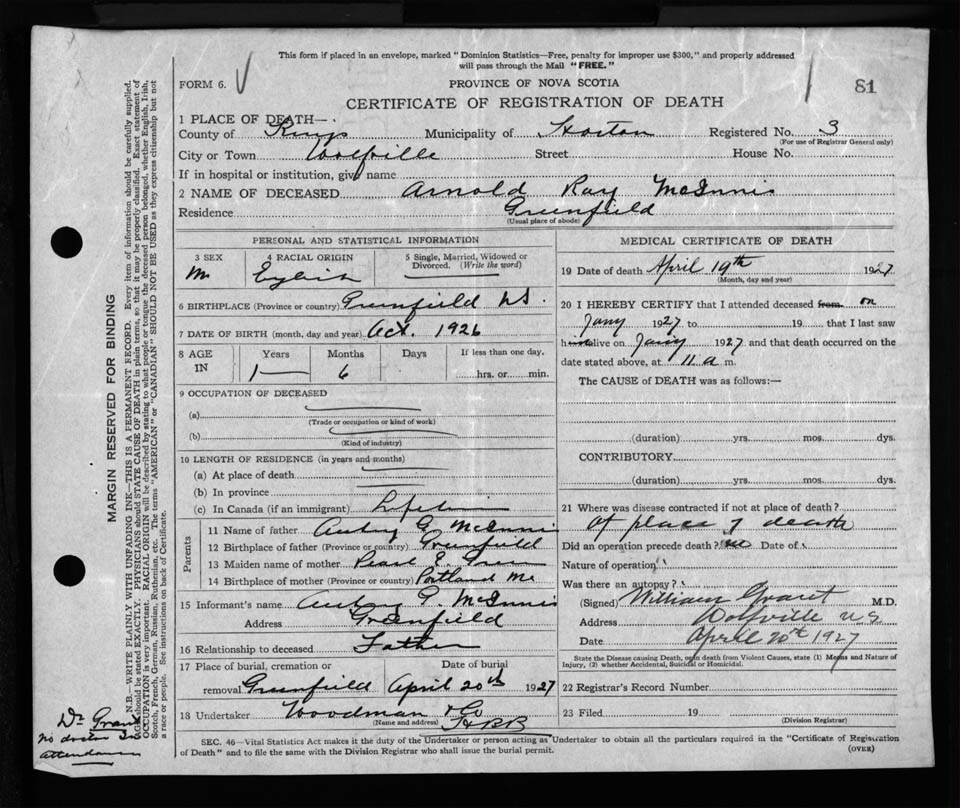 This form if placed in an envelope, marked "Dominion Statistics—Free, penalty for improper use $300," and properly addressed
will pass through the Mail "FREE."
FORM 6.
PROVINCE OF NOVA SCOTIA
81
CERTIFICATE OF REGISTRATION OF DEATH
1 PLACE OF DEATH—
County of Kings Municipality of Horton Registered No. 3
(For use of Registrar General only)
City or Town Wolfville Street House No.
If in hospital or institution, give name
2 NAME OF DECEASED Arnold Ray McInnis
Residence Greenfield
(Usual place of abode)
PERSONAL AND STATISTICAL INFORMATION
3 SEX 4 RACIAL ORIGIN 5 Single, Married, Widowed or
Divorced. (Write the word)
M English
6 BIRTHPLACE (Province or country) Greenfield N.S.
7 DATE OF BIRTH (month, day and year) Oct. 1926
8 AGE IN Years Months Days If less than one day,
1 — 6 hrs. or min.
9 OCCUPATION OF DECEASED
(a)
(Trade or occupation or kind of work)
(b)
(Kind of industry)
10 LENGTH OF RESIDENCE (in years and months)
(a) At place of death
(b) In province
(c) In Canada (if an immigrant) Lifetime
Parents
11 Name of father G. McInnis
12 Birthplace of father (Province or country) Greenfield
13 Maiden name of mother Pearl E.
14 Birthplace of mother (Province or country) Portland Me
15 Informant's name G McInnis
Address Greenfield
16 Relationship to deceased Father
17 Place of burial, cremation or Date of burial
removal Greenfield April 20th 1927
18 Undertaker Woodman & Co
(Name and address)
MEDICAL CERTIFICATE OF DEATH
19 Date of death April 19th 1927
(Month, day and year)
20 I HEREBY CERTIFY that I attended deceased from on
Jany 1927 to 19 that I last saw
h alive on Jany 1927 and that death occurred on the
date stated above, at 11 a m.
The CAUSE of DEATH was as follows:—
(duration) yrs. mos. dys.
CONTRIBUTORY
(duration) yrs. mos. dys.
21 Where was disease contracted if not at place of death?
At place of death
Did an operation precede death? no Date of
Nature of operation
Was there an autopsy?
(Signed) William Grant M.D.
Address Wolfville N.S
Date April 20th 1927
State the Disease causing Death, or in death from Violent Causes, state (1) Means and Nature of
Injury, (2) whether Accidental, Suicidal or Homicidal.
22 Registrar's Record Number
23 Filed 19
(Division Registrar)
SEC. 46—Vital Statistics Act makes it the duty of the Undertaker or person acting as Undertaker to obtain all the particulars required in the "Certificate of Registration
of Death" and to file the same with the Division Registrar who shall issue the burial permit.
(OVER)
MARGIN RESERVED FOR BINDING
N.B.—WRITE PLAINLY WITH UNFADING INK—THIS IS A PERMANENT RECORD. Every item of information should be carefully supplied.
AGE should be stated EXACTLY. PHYSICIANS should STATE CAUSE OF DEATH in plain terms, so that it may be properly classified. Exact statement of
OCCUPATION is very important. RACIAL ORIGIN will be described by stating to what people or tongue the deceased person belonged, whether English, Irish,
Scotch, French, German, Russian, Ruthenian, etc. The terms "AMERICAN" or "CANADIAN" SHOULD NOT BE USED as they express citizenship but not
a race or people. See instructions on back of Certificate.
Dr Grant
no doctor in
attendance